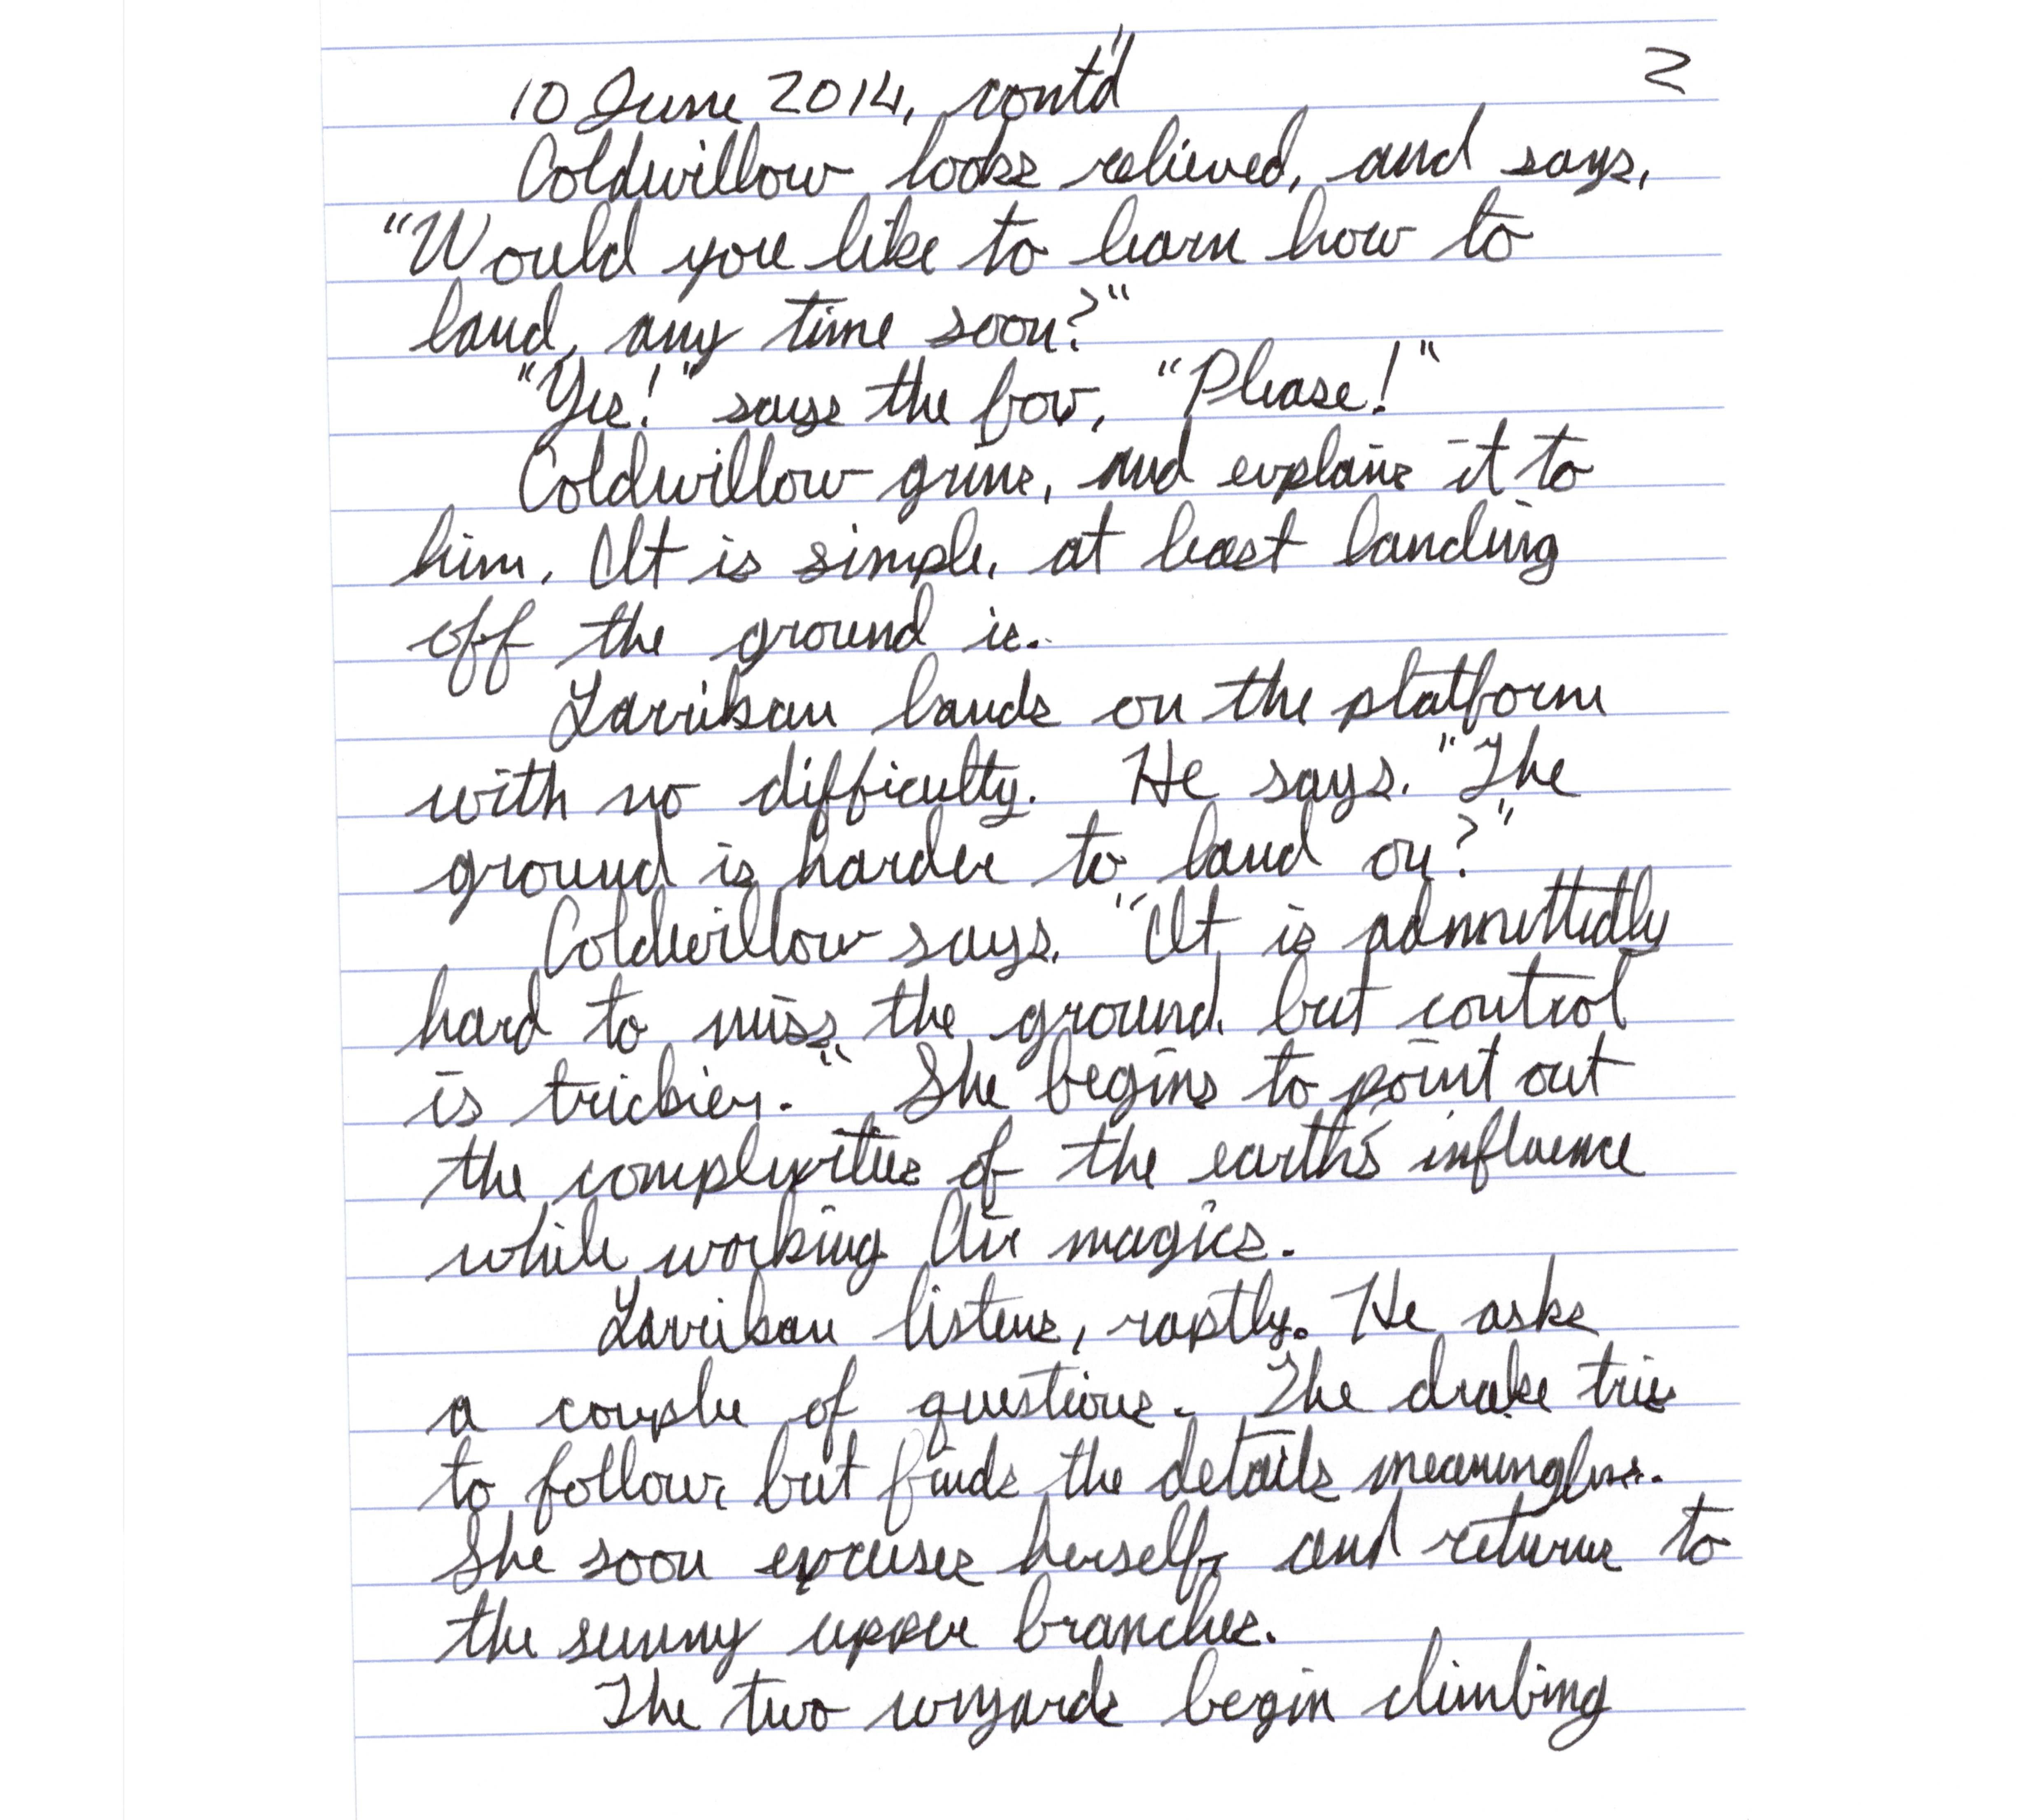 10 June 2014, cont'd 2
Coldwillow looks relieved, and says,
"Would you like to learn how to
land, any time soon?"
"Yes!" says the fox, "Please!"
Coldwillow grins, and explains it to
him. It is simple, at least landing
off the ground is.
Larrikan lands on the platform
with no difficulty. He says, "The
ground is harder to land on?"
Coldwillow says, "It is admittedly
hard to miss the ground, but control
is trickier." She begins to point out
the complexities of the earth's influence
while working Air magics.
Larrikan listens, raptly. He asks
a couple of questions. The drake tries
to follow, but finds the details meaningless.
She soon excuses herself, and returns to
the sunny upper branches.
The two wizards begin climbing